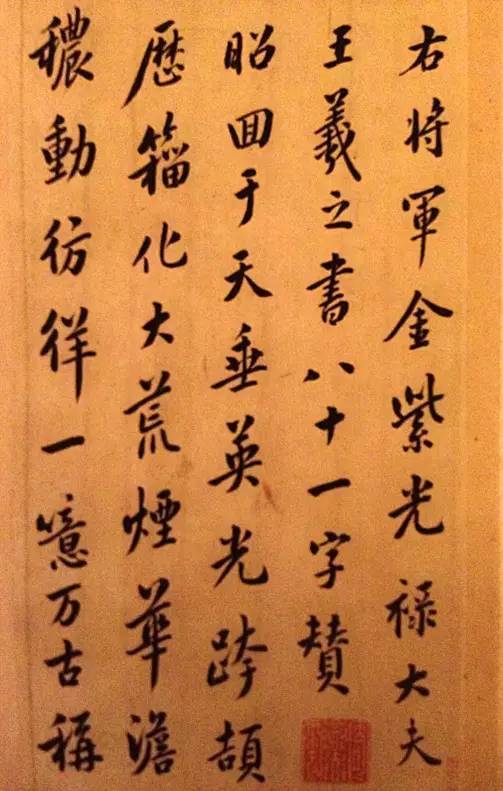 右将軍金紫光禄大夫
王羲之書八十一字賛
昭囬于天垂英光跨頡
歴籀化大荒煙華澹
穠動彷徉一噫万古称